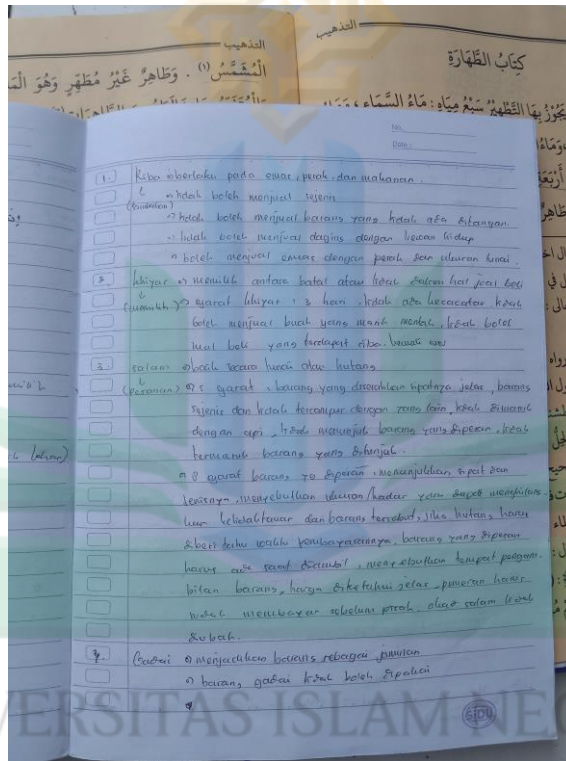 التذهيب
الْمُشَمَّسُ (١) . وَطَاهِرٌ غَيْرُ مُطَهِّرٍ وَهُوَ
التذهيب
كِتَابُ الطَّهَارَةِ
يَجُوزُ بِهَا التَّطْهِيرُ سَبْعُ مِيَاهٍ : مَاءُ السَّمَاءِ ،
No.
Date :
1. Riba → berlaku pada emas, perak, dan makanan.
→ tidak boleh menjual sejenis
(tambahan) → tidak boleh menjual barang yang tidak ada ditangan.
→ tidak boleh menjual daging dengan hewan hidup
→ boleh menjual emas dengan perak dan ukuran tunai.
2. khiyar → memilih antara batal atau tidak dalam hal jual beli
(memilih) → syarat khiyar : 3 hari, tidak ada kecacatan tidak
boleh menjual buah yang masih mentah, tidak boleh
jual beli yang terdapat riba.
3. salam → baik secara tunai atau hutang
(pesanan) → 5 syarat, barang yang diserahkan sifatnya jelas, barang
sejenis dan tidak tercampur dengan yang lain, tidak dimasak
dengan api, tidak menunjuk barang yang dipesan, tidak
termasuk barang yang ditunjuk.
→ 8 syarat barang yg dipesan, menunjukkan sifat dan
jenisnya, menyebutkan ukuran/kadar yang dapat menghilang-
kan ketidaktauan dan barang tersebut, jika hutang harus
diberi tahu waktu pembayarannya, barang yang dipesan
harus ada saat diambil, menyebutkan tempat pengam-
bilan barang, harga diketahui jelas, pemesan harus
membayar sebelum pisah, akad salam tidak
dubah.
4. Gadai → menjadikan barang sebagai jaminan
→ barang gadai tidak boleh dipakai
SIDU
ERSITAS ISLAM NE